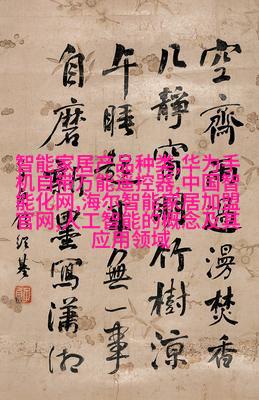 空齋雨漫焚香
几靜窗明竹樹涼
午睡無一事
自磨墨寫瀟湘
智能家居产品种类,华为手
机自带万能遥控器,中国智
能化网,海尔智能家居加盟
官网,人工智能的概念及其
应用领域